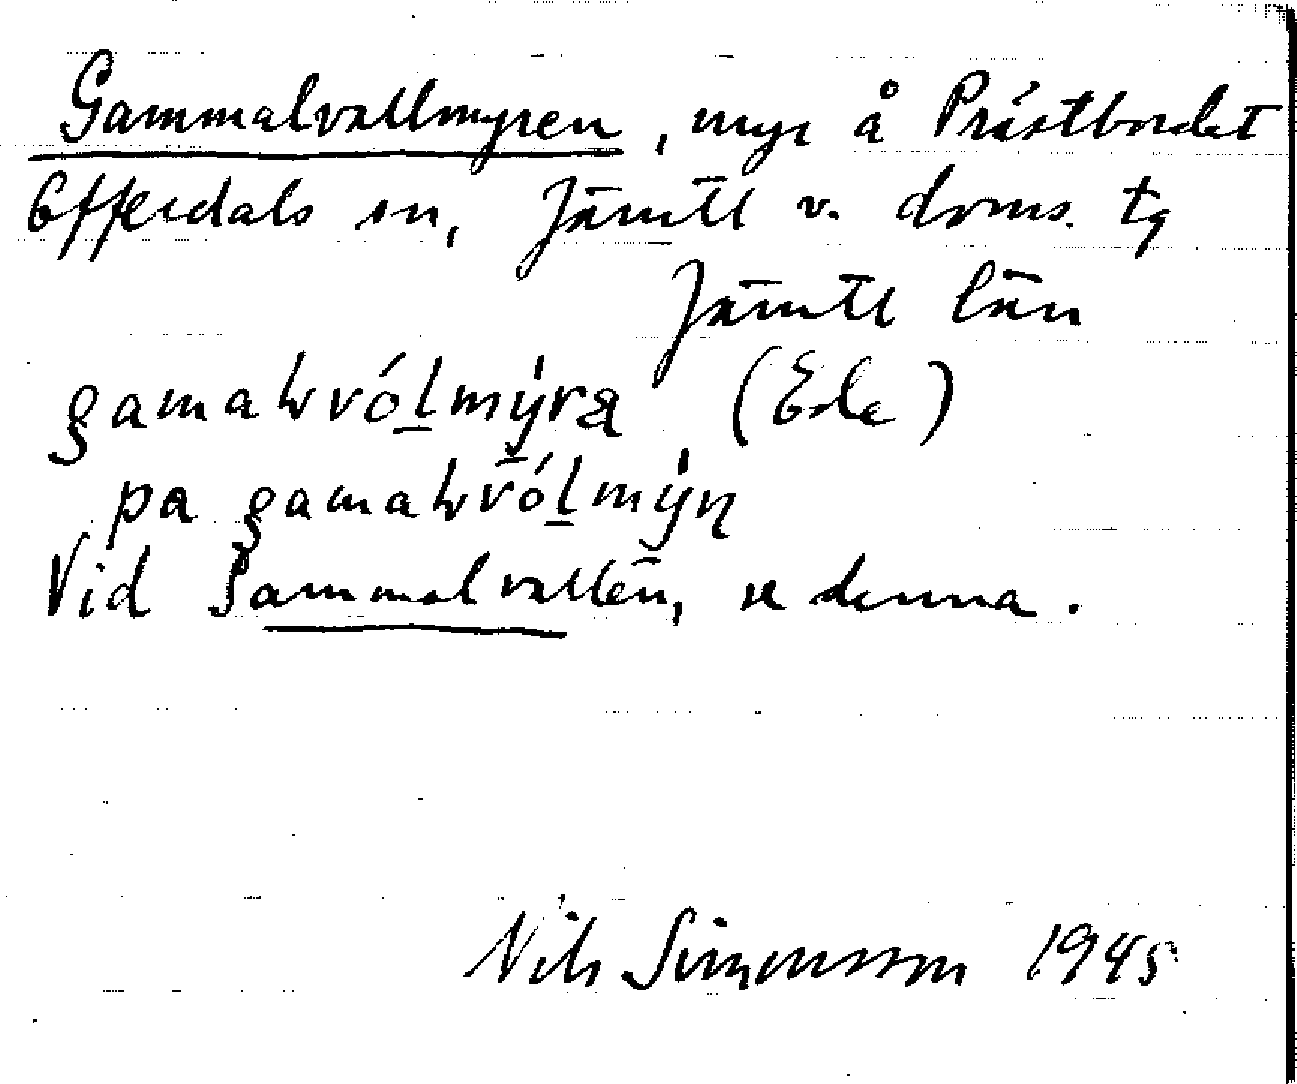 Gammalvallmyren, myr å Prästbordet
Offerdals sn, Jämtl v. doms. tg
Jämtl län
gamaƚvóḻmýra (Ede)
pa gamaƚvóḻmýn
Vid Gammalvallen, se denna.
Nils Simonsson 1945